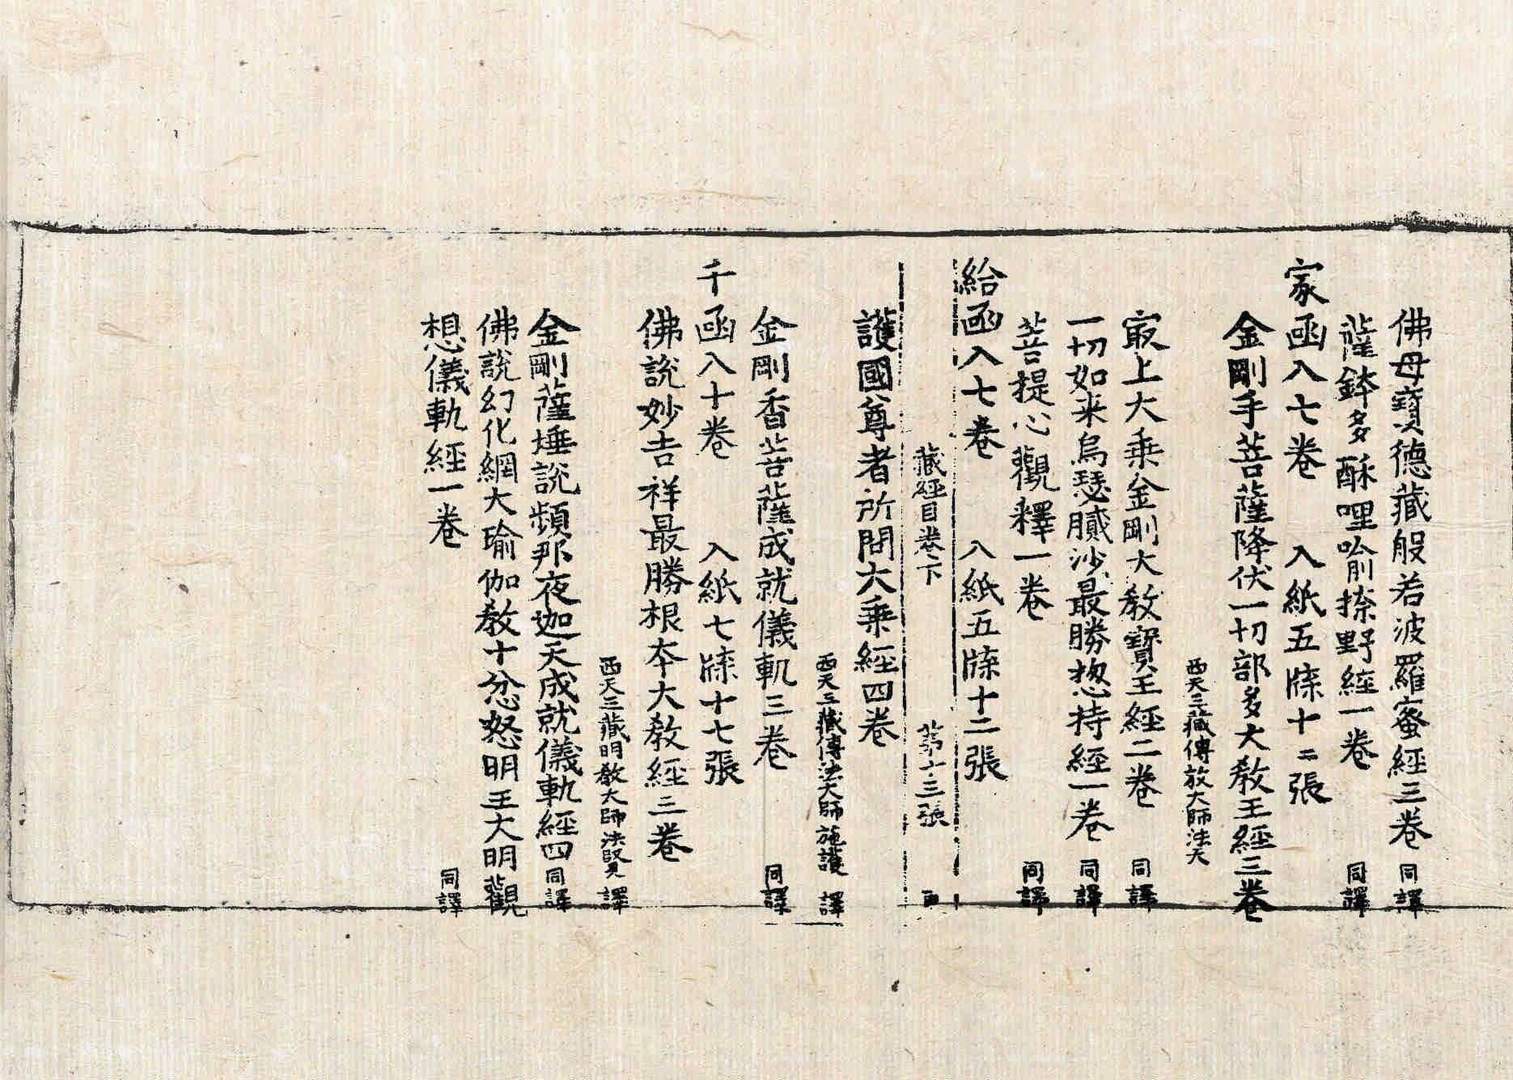 佛母寶德藏般若波羅蜜經三卷 同譯
薩鉢多酥哩喻捺野經一卷 同譯
家函入七卷 入紙五牒十二張
金剛手菩薩降伏一切部多大教王經三卷
西天三藏傳教大師法天
最上大乘金剛大教寶王經二卷 同譯
一切如来烏瑟膩沙最勝揔持經一卷 同譯
菩提心觀釋一卷 同譯
給函入七卷 入紙五牒十二張
藏經目卷下 第十三張
護國尊者所問大乘經四卷
西天三藏傳法大師施護 譯
金剛香菩薩成就儀軌三卷 同譯
千函入十卷 入紙七牒十七張
佛說妙吉祥最勝根本大教經三卷
西天三藏明教大師法賢 譯
金剛薩埵說頻那夜迦天成就儀軌經四 同譯
佛說幻化網大瑜伽教十忿怒明王大明觀
想儀軌經一卷 同譯